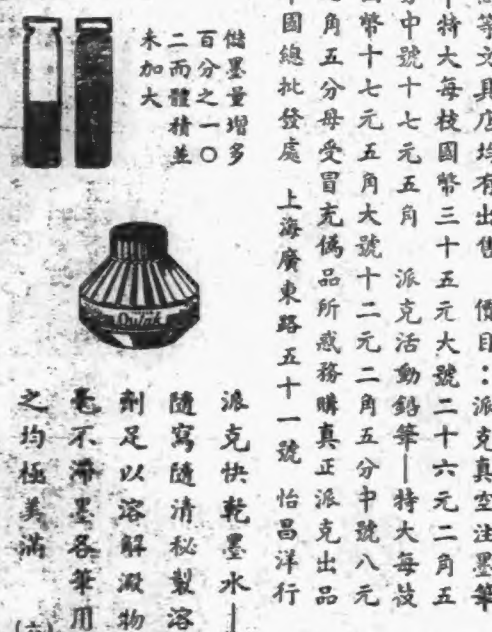 等文具店均有出售　價目：派克真空注墨筆
特大每枝國幣三十五元大號二十六元二角五
中號十七元五角　派克活動鉛筆—特大每枝
幣十七元五角大號十二元二角五分中號八元
角五分毋受冒充僞品所惑務購真正派克出品
國總批發處　上海廣東路五十一號　怡昌洋行
儲墨量增多
百分之一〇
二而體積並
未加大
Quink
派克快乾墨水—
隨寫隨清秘製溶
劑足以溶解澱物
毫不滯墨各筆用
之均極美滿
(六)